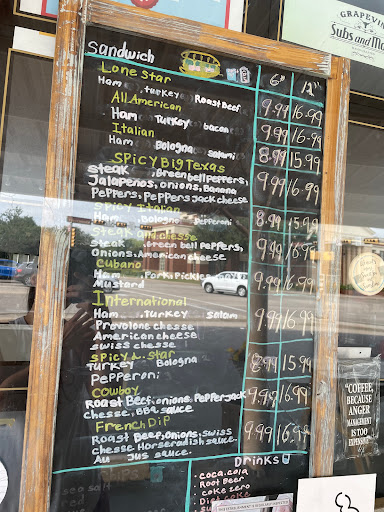 GRAPEVINE
Subs and Mo
Sandwich 6" 12"
Lone Star
Ham , turkey Roast Beef 9.99 16.99
All American
Ham Turkey bacon 9.99 16.99
Italian
Ham Bologna Salami 8.99 15.99
SPicy Big Texas
steak , Green bell Peppers, 9.99 16.99
Jalapenos, onions, Banana
Peppers, Peppers jack cheese
Spicy Italian
Ham Bologna Pepperoni 8.99 15.99
Steak and cheese
steak , Green bell Peppers, 9.99 16.99
Onions, American cheese
Cubano
Ham Pork Pickles 9.99 16.99
Mustard
International
Ham , Turkey Salam 9.99 16.99
Provolone chesse
American cheese
swiss chesse
spicy L. star
Turkey Bologna 8.99 15.99
PePPeroni
Cowboy
Roast Beef, onions, Pepper jack 9.99 16.99
chesse, BBQ sauce
French Dip
Roast Beef, Onions, swiss 9.99 16.99
chesse Horseradish sauce.
Au Jus sauce.
Drinks
. coca.cola
. Root Beer
. coke zero
. Diet coke
"COFFEE,
BECAUSE
ANGER
MANAGEMENT
IS TOO
EXPENSIVE"